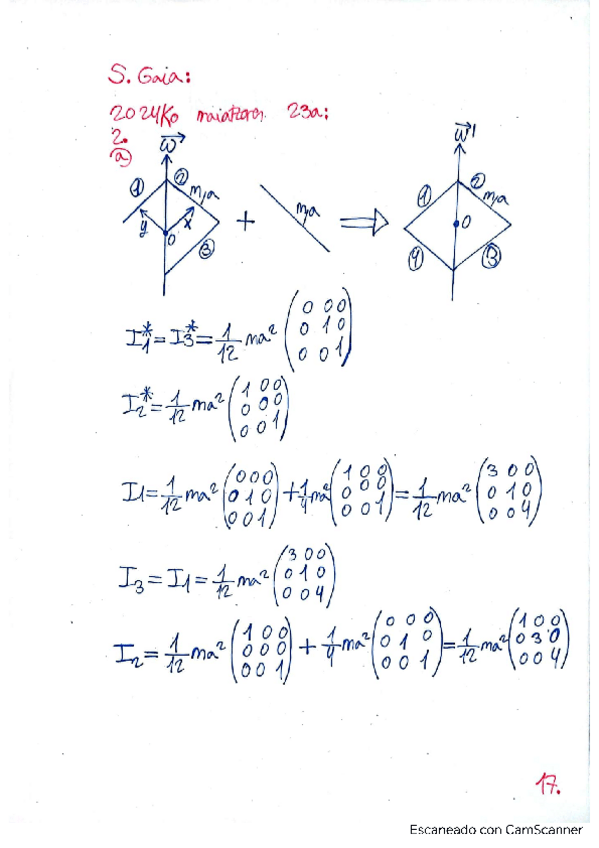 S. Gaia:
2024ko maiatzaren 23a:
2.
a)
ω⃗ ω⃗'
① ② m,a m,a ① ② m,a
y x + ⇒ O
O ③ ④ ③
I₁* = I₃* = 1/12 ma² (0 0 0; 0 1 0; 0 0 1)
I₂* = 1/12 ma² (1 0 0; 0 0 0; 0 0 1)
I1 = 1/12 ma² (0 0 0; 0 1 0; 0 0 1) + 1/4 ma² (1 0 0; 0 0 0; 0 0 1) = 1/12 ma² (3 0 0; 0 1 0; 0 0 4)
I₃ = I1 = 1/12 ma² (3 0 0; 0 1 0; 0 0 4)
I₂ = 1/12 ma² (1 0 0; 0 0 0; 0 0 1) + 1/4 ma² (0 0 0; 0 1 0; 0 0 1) = 1/12 ma² (1 0 0; 0 3 0; 0 0 4)
17.
Escaneado con CamScanner